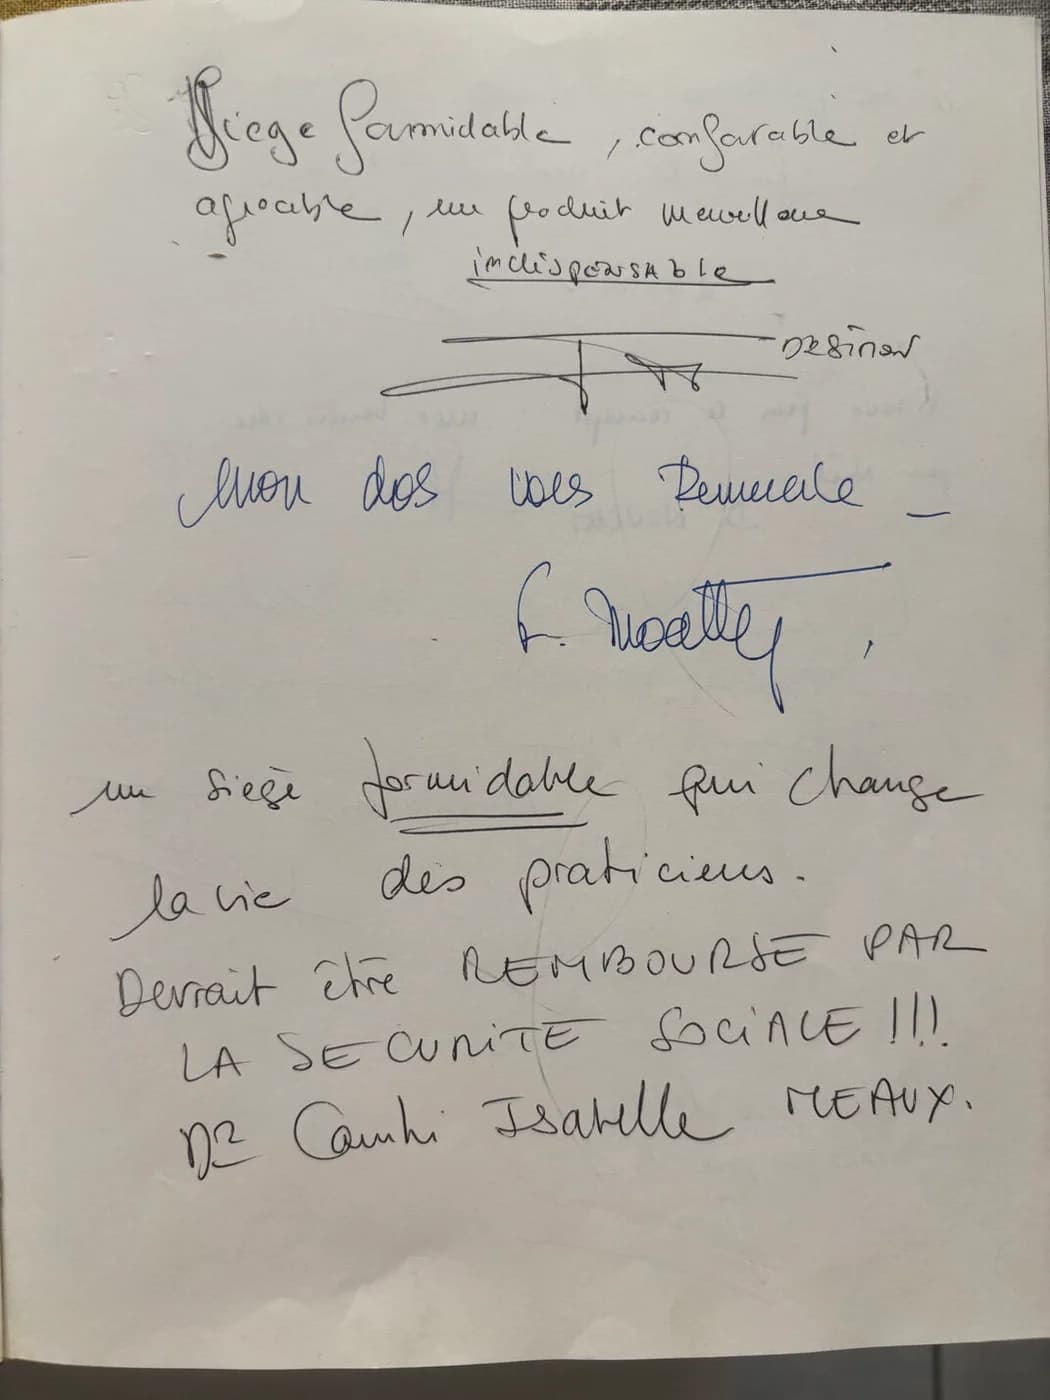 Siege formidable, confortable et
agréable, un produit merveilleux
indispensable
DR SITBON
Mon dos vous Remercie
un siège formidable qui change
la vie des praticiens.
Devrait être REMBOURSE PAR
LA SECURITE SOCIALE !!!
DR Isabelle MEAUX.